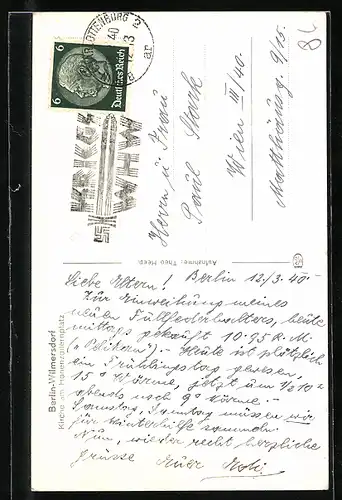 CHARLOTTENBURG 2
40
12-13
a
ar
6
6
Deutsches Reich
KRIEGS-
WHW
82
Herrn u Frau
Paul Stark
Wien III/40.
9/15.
Aufnahme: Theo Heep
Berlin-Wilmersdorf
Kirche am Hohenzollernplatz
Liebe Eltern! Berlin 12./3. 40.
Zur Einweihung meines
neuen Füllfederhalters, heute
mittags gekauft 10.95 R.M.
("Pelikan"). Heute ist plötzlich
ein Frühlingstag gewesen,
15° Wärme, jetzt um ½10h
abends noch 9° Wärme.
Samstag, Sonntag müssen wir
für Winterhilfe sammeln.
Nun, wieder recht herzliche
Grüsse Euer